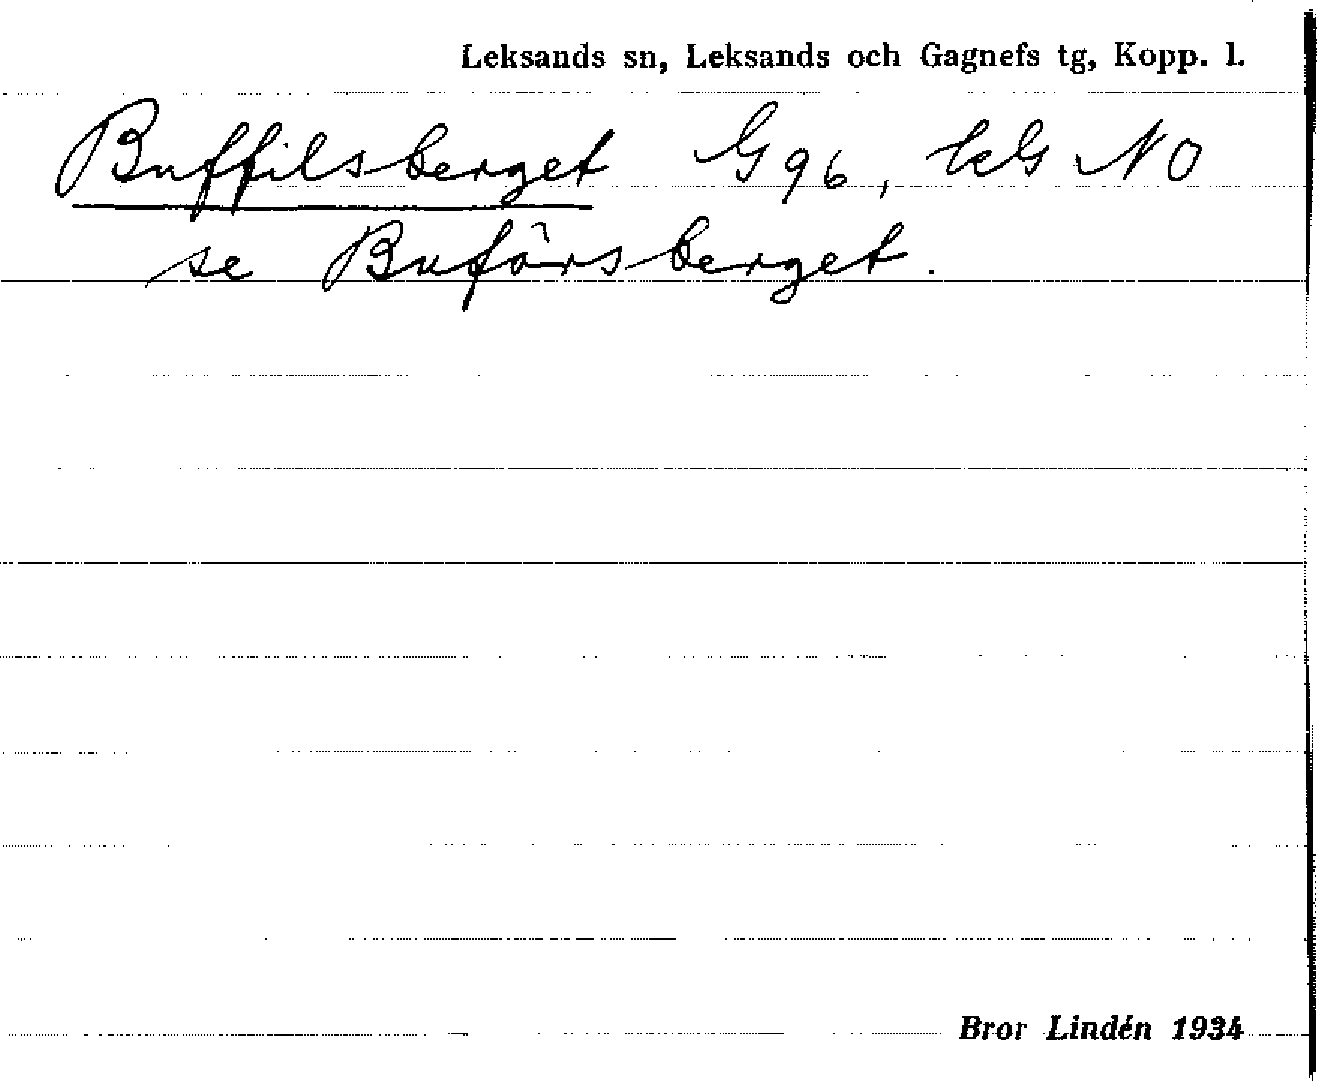 Leksands sn, Leksands och Gagnefs tg, Kopp. l.
Buffilsberget G 96, kG NO
se Buförsberget.
Bror Lindén 1934